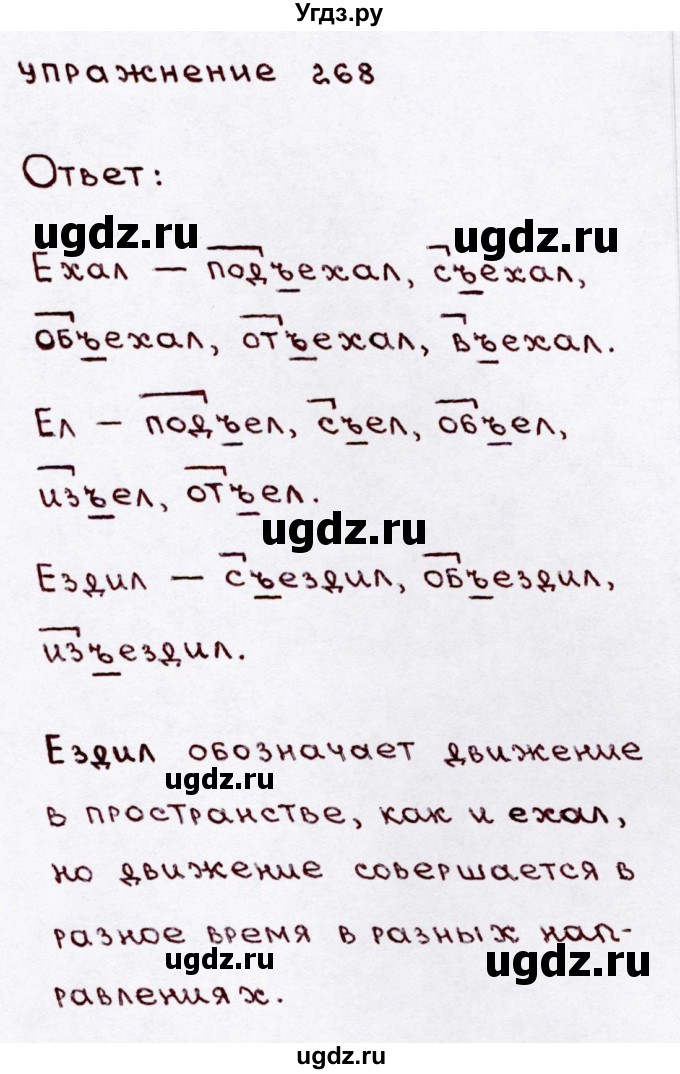 Угдз.ру
упражнение 268
Ответ:
ugdz.ru ugdz.ru
Ехал — подъехал, съехал,
объехал, отъехал, въехал.
Ел — подъел, съел, объел,
изъел, отъел.
ugdz.ru
Ездил — съездил, объездил,
изъездил.
Ездил обозначает движение
ugdz.ru
в пространстве, как и ехал,
но движение совершается в
разное время в разных нап-
ugdz.ru ugdz.ru
равлениях.
ugdz.ru